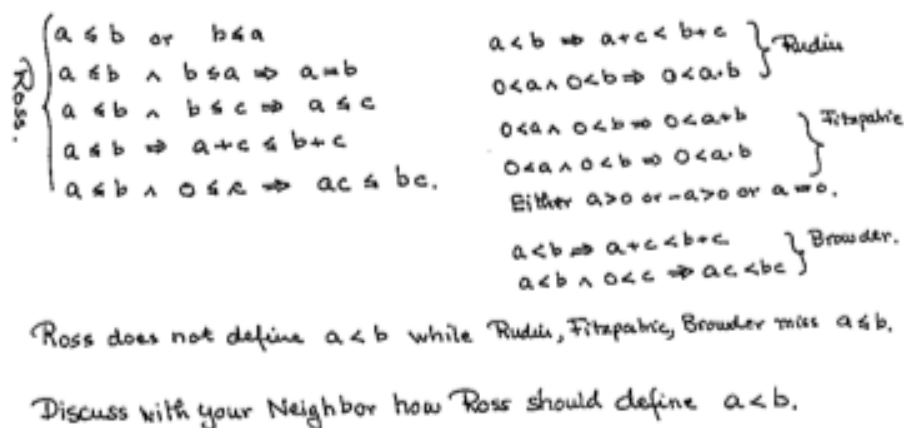 Ross.
a ≤ b or b ≤ a
a ≤ b ∧ b ≤ a ⇒ a = b
a ≤ b ∧ b ≤ c ⇒ a ≤ c
a ≤ b ⇒ a+c ≤ b+c
a ≤ b ∧ 0 ≤ c ⇒ ac ≤ bc.
a < b ⇒ a+c < b+c
0<a ∧ 0<b ⇒ 0<a·b
Rudin
0<a ∧ 0<b ⇒ 0<a+b
0<a ∧ 0<b ⇒ 0<a·b
Either a>0 or -a>0 or a=0.
Fitzpatric
a<b ⇒ a+c<b+c
a<b ∧ 0<c ⇒ ac<bc
Browder.
Ross does not define a<b while Rudin, Fitzpatric, Browder miss a≤b.
Discuss with your Neighbor how Ross should define a<b.